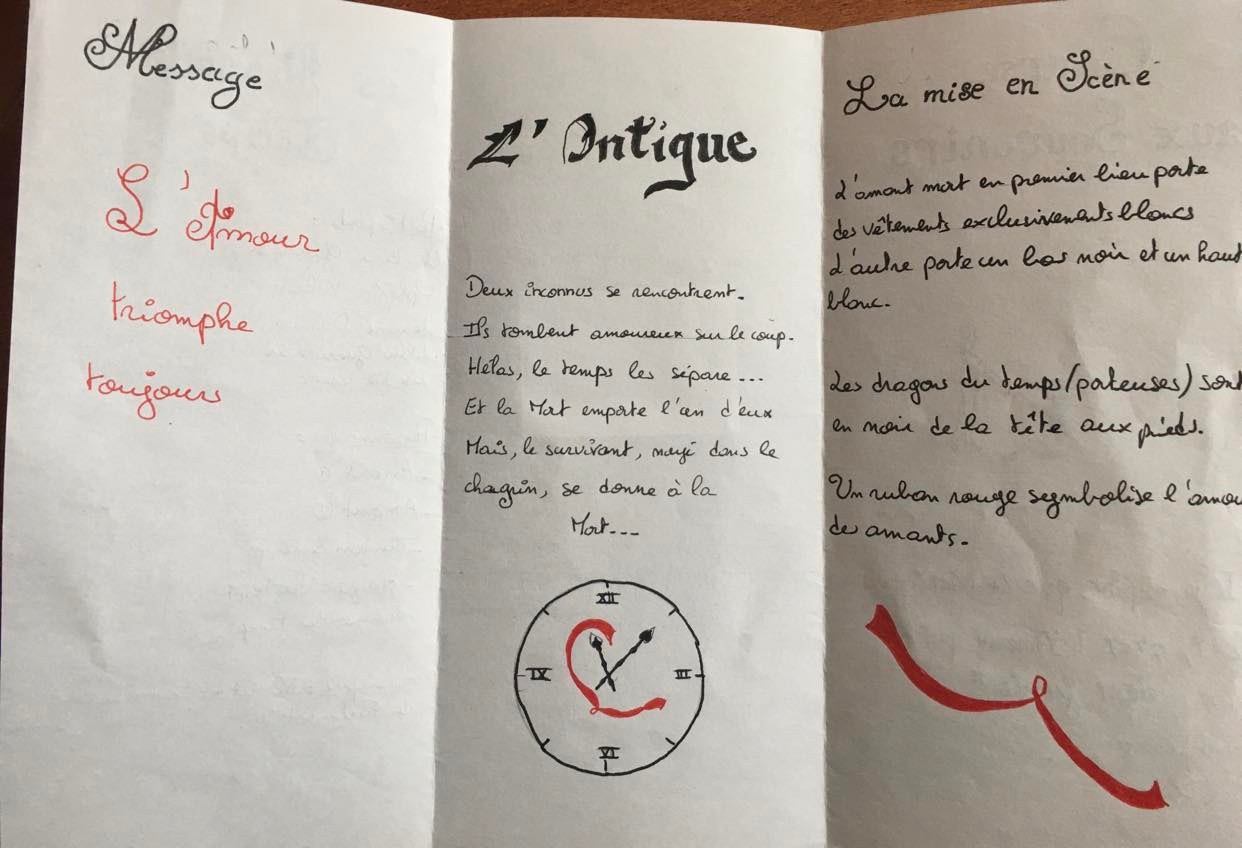 Message
L'Amour
triomphe
toujours
L'Intique
Deux inconnus se rencontrent.
Ils tombent amoureux sur le coup.
Hélas, le temps les sépare...
Et la Mort emporte l'un d'eux
Mais, le survivant, noyé dans le
chagrin, se donne à la
Mort...
XII
IX
III
VI
La mise en Scène
L'amant mort en premier lieu porte
des vêtements exclusivements blancs
L'autre porte un bas noir et un haut
blanc.
Les dragons du temps/(porteuses) sont
en noir de la tête aux pieds.
Un ruban rouge segmbolise l'amou
des amants.